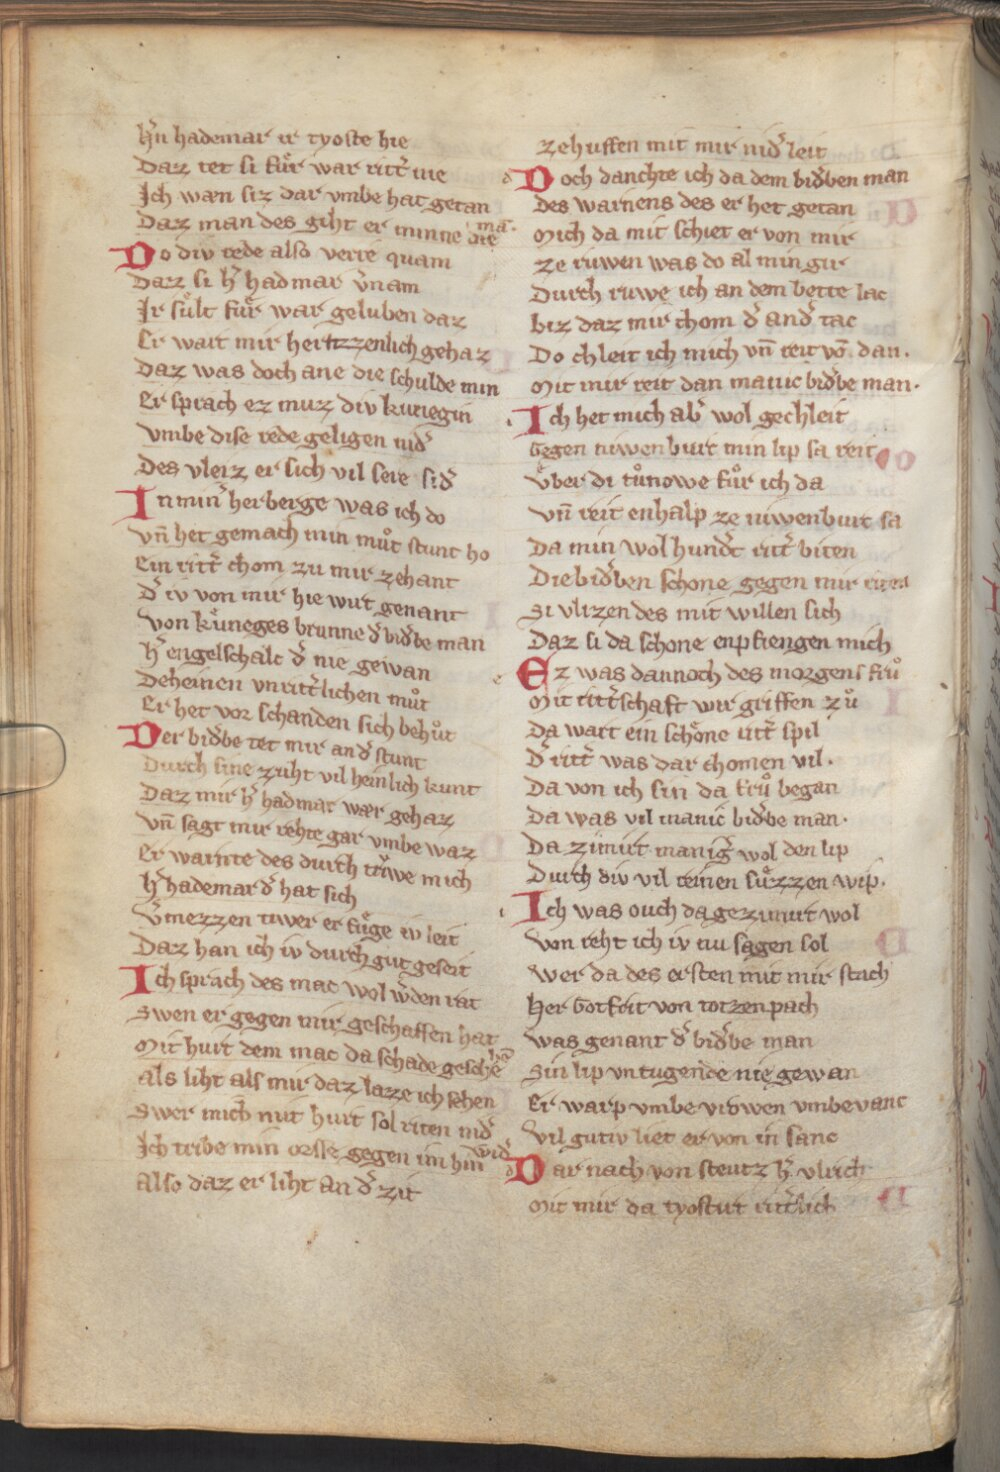 hˀn hademar ir tyoste hie
Daz tet si fuͤr war rittˀ nie
Ich wæn siz dar vmbe hat getan
Daz man des giht er minne die man
Do div rede also verre quam
Daz si hˀ hadmar vˀnam
Ir suͤlt fuͤr war gelouben daz
Er wart mir hertzzenlich gehaz
Daz was doch ane die schulde min
Er sprach ez muz div kunegin
vmbe dise rede geligen nidˀ
Des vleiz er sich vil sere sidˀ
In minˀ herberge was ich do
vn̄ het gemach min muͦt stunt ho
Ein rittˀ chom zu mir zehant
dˀ iv von mir hie wirt genant
von kuͤneges brunne dˀ bidˀbe man
hˀ engelschalc dˀ nie gewan
Deheinen vnrittˀlichen muͦt
Er het vor schanden sich behuͦt
Der bidˀbe tet mir an dˀ stunt
Durch sine zuht vil heinlich kunt
Daz mir hˀ hadmar wær gehaz
vn̄ sagt mir rehte gar vmbe waz
Er warnte des durch triwe mich
hˀ hademar dˀ hat sich
vˀmezzen iwer er fuͤge iv leit
Daz han ich iv durch gut geseit
Ich sprach des mac wol wˀden rat
swen er gegen mir geschaffen hat
Mit hurt dem mac da schade geschehˀn
als liht als mir daz lazze ich sehen
swer mich mit hurt sol riten nidˀ
Ich tribe min orsse gegen im hin widˀ
also daz er liht an dˀ zit
zehuffen mit mir nidˀ leit
Doch danchte ich da dem bidˀben man
des warnens des er het getan
Mich da mit schiet er von mir
ze ruwen was do al min gir
Durch ruwe ich an dem bette lac
biz daz mir chom dˀ andˀ tac
Do chleit ich mich vn̄ reit vō dan.
Mit mir reit dan manic bidˀbe man.
Ich het mich abˀ wol gechleit
Gegen niwenburc min lip sa reit
vͤber di tuͦnowe fuͦr ich da
vn̄ reit enhalp ze niwenburc sa
Da min wol hundˀt rittˀ biten
Die bidˀben schone gegen mir riten
si vlizen des mit willen sich
Daz si da schone enpfiengen mich
Ez was dannoch des morgens fruͦ
Mit rittˀschaft wir griffen zuͦ
Da wart ein schoͤne rittˀ spil
dˀ rittˀ was dar chomen vil.
Da von ich sin da fruͦ began
Da was vil manic bidˀbe man.
Da zimirt manigˀ wol den lip
Durch div vil reinen suͤzzen wip.
Ich was ouch da gezimirt wol
von reht ich iv nu sagen sol
wer da des ersten mit mir stach
Her Gotfrit von totzenpach
was genant dˀ bidˀbe man
Sin lip vntugende nie gewan
Er warp vmbe vrowen vmbevanc
vil gutiv liet er von in sanc
Dar nach von steutz hˀ vlrich
Mit mir da tyostirt rittˀlich